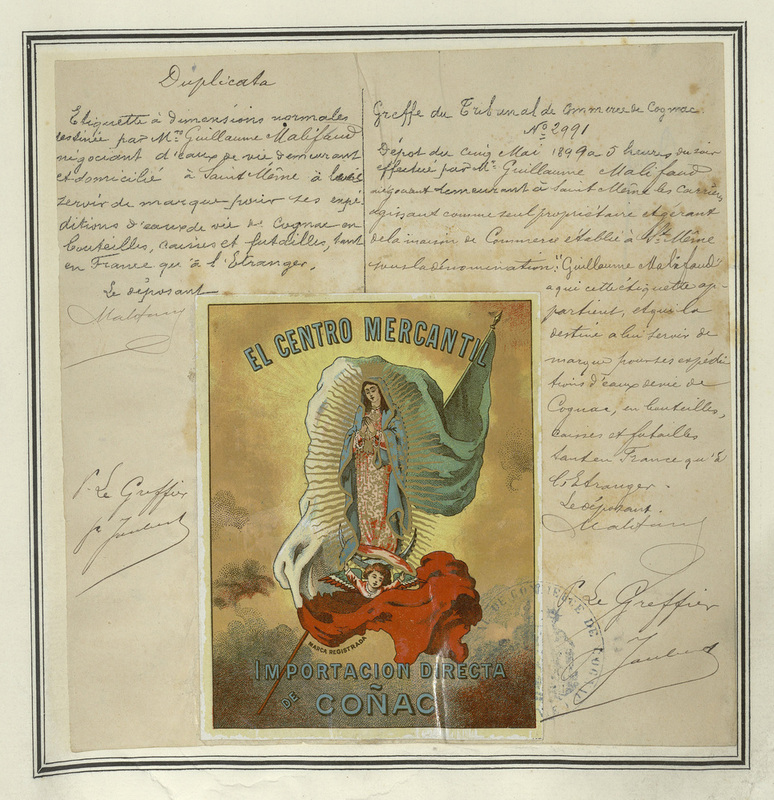 Duplicata
Etiquette à dimensions normales
dessinée par Mr. Guillaume Malifaud
négociant d'eaux de vie demeurant
et domicilié à Saint Même à
servir de marque pour ses expé-
ditions d'eaux de vie de Cognac en
bouteilles, caisses et futailles, tant
en France qu'à l'Etranger.
Le déposant
Malifaud
P. Le Greffier
Joubert
Greffe du Tribunal de Commerce de Cognac
No. 2991
Depot du Cinq Mai 1899 à 5 heures du soir
effectué par Mr. Guillaume Malifaud
négociant demeurant à Saint Même les Carrières
agissant comme seul propriétaire et gérant
de la maison de Commerce établie à St. Même
sous la dénomination: "Guillaume Malifaud"
à qui cette étiquette ap-
partient, et qui la
destine à lui servir de
marque pour ses expédi
tions d'eaux de vie de
Cognac, en bouteilles,
caisses et futailles
tant en France qu'à
l'Etranger.
Le déposant.
Malifaud
P. Le Greffier
Joubert
EL CENTRO MERCANTIL
MARCA REGISTRADA
IMPORTACION DIRECTA
DE COÑAC
DE COMMERCE DE COGNAC